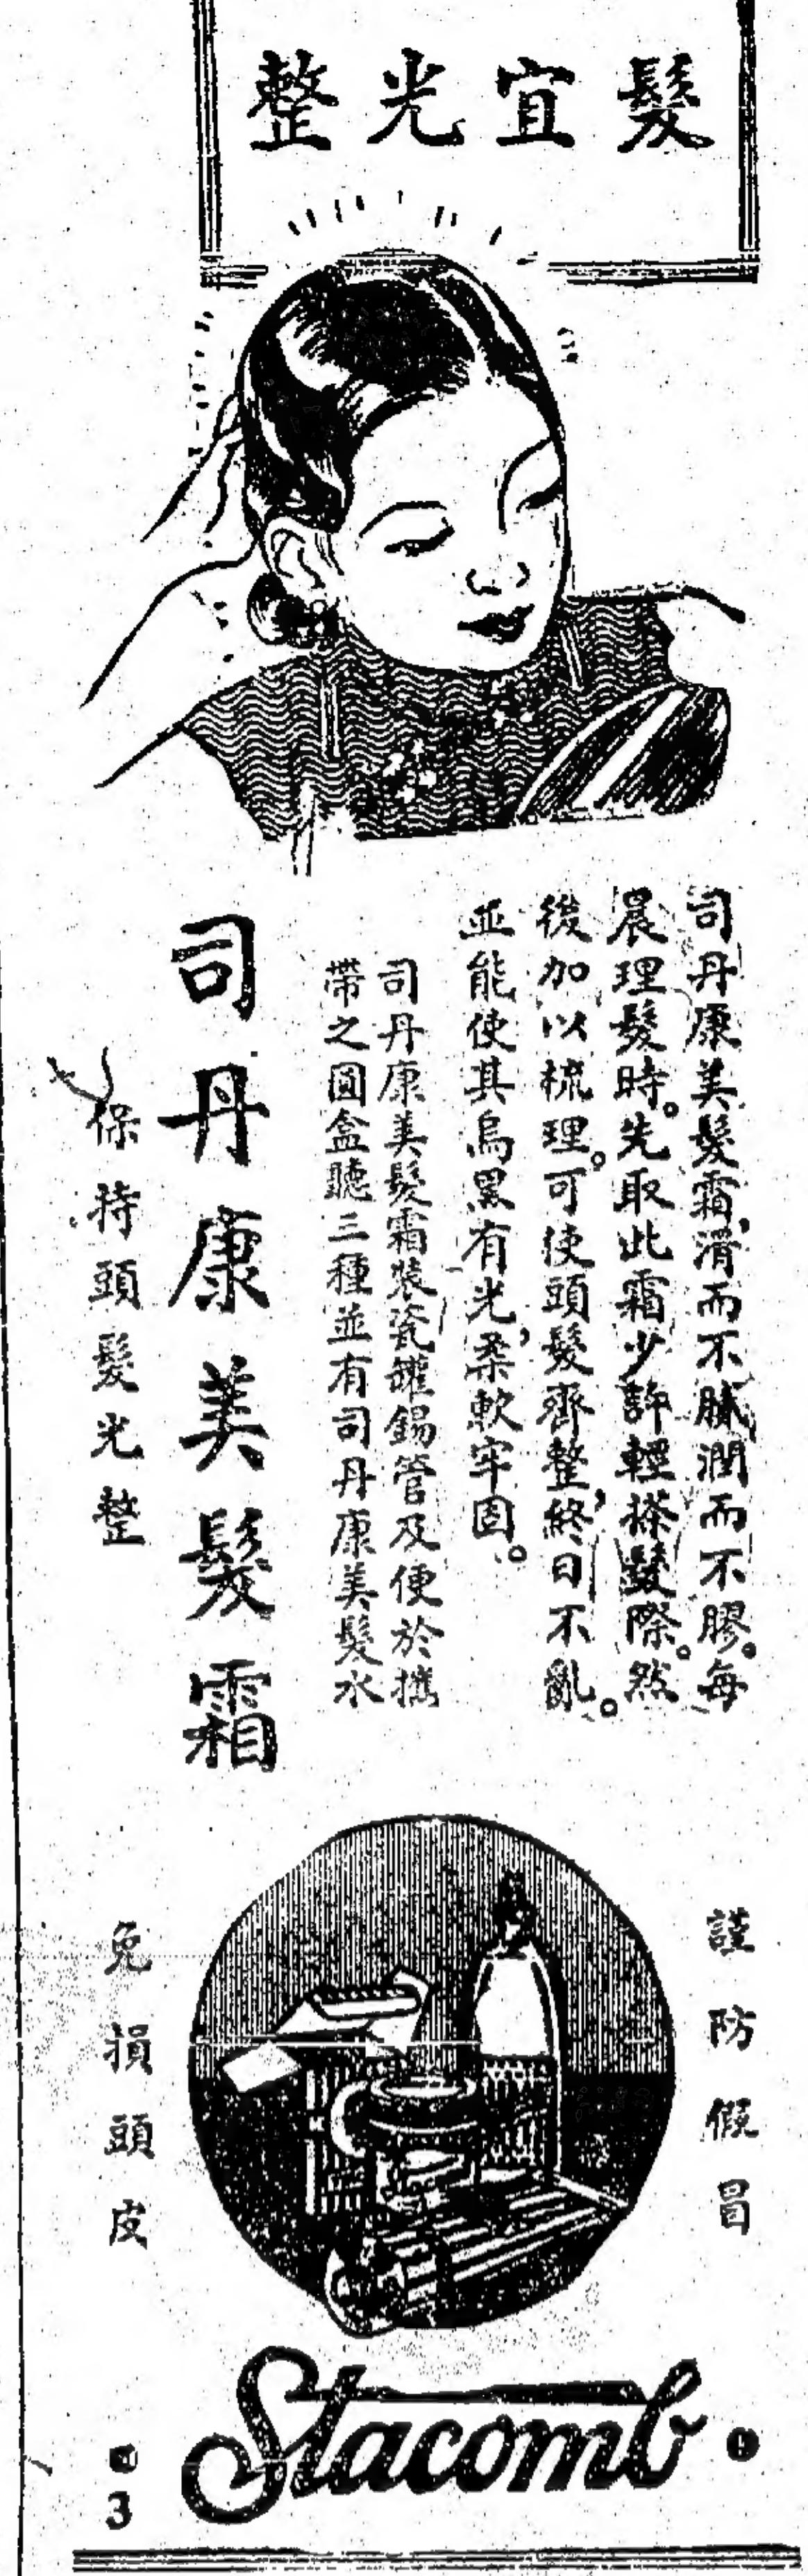 髮宜光整
司丹康美髮霜，滑而不膩潤而不膠。每
晨理髮時。先取此霜少許輕搽髮際。然
後加以梳理。可使頭髮齊整，終日不亂。
並能使其烏黑有光，柔軟牢固。
司丹康美髮霜裝瓷罐錫管及便於攜
帶之圓盒聽三種並有司丹康美髮水
司丹康美髮霜
保持頭髮光整
謹防假冒
免損頭皮
Stacomb
3